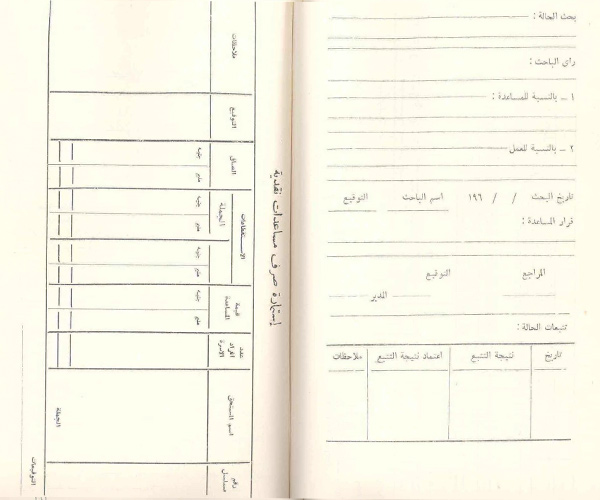 بحث الحالة :
رأي الباحث :
١ ـ بالنسبة للمساعدة :
٢ ـ بالنسبة للعمل
تاريخ البحث / / ١٩٦ اسم الباحث التوقيع
قرار المساعدة :
المراجع التوقيع
المدير
تتبعات الحالة :
تاريخ نتيجة التتبع اعتماد نتيجة التتبع ملاحظات
إستمارة صرف مساعدات نقدية
رقم مسلسل
اسم المستحق
عدد افراد الاسرة
قيمة المساعدة
الاستقطاعات
الجملة
الصافي
التوقيع
ملاحظات
مليم جنيه
مليم جنيه
مليم جنيه
مليم جنيه
الجملة
التوقيعات